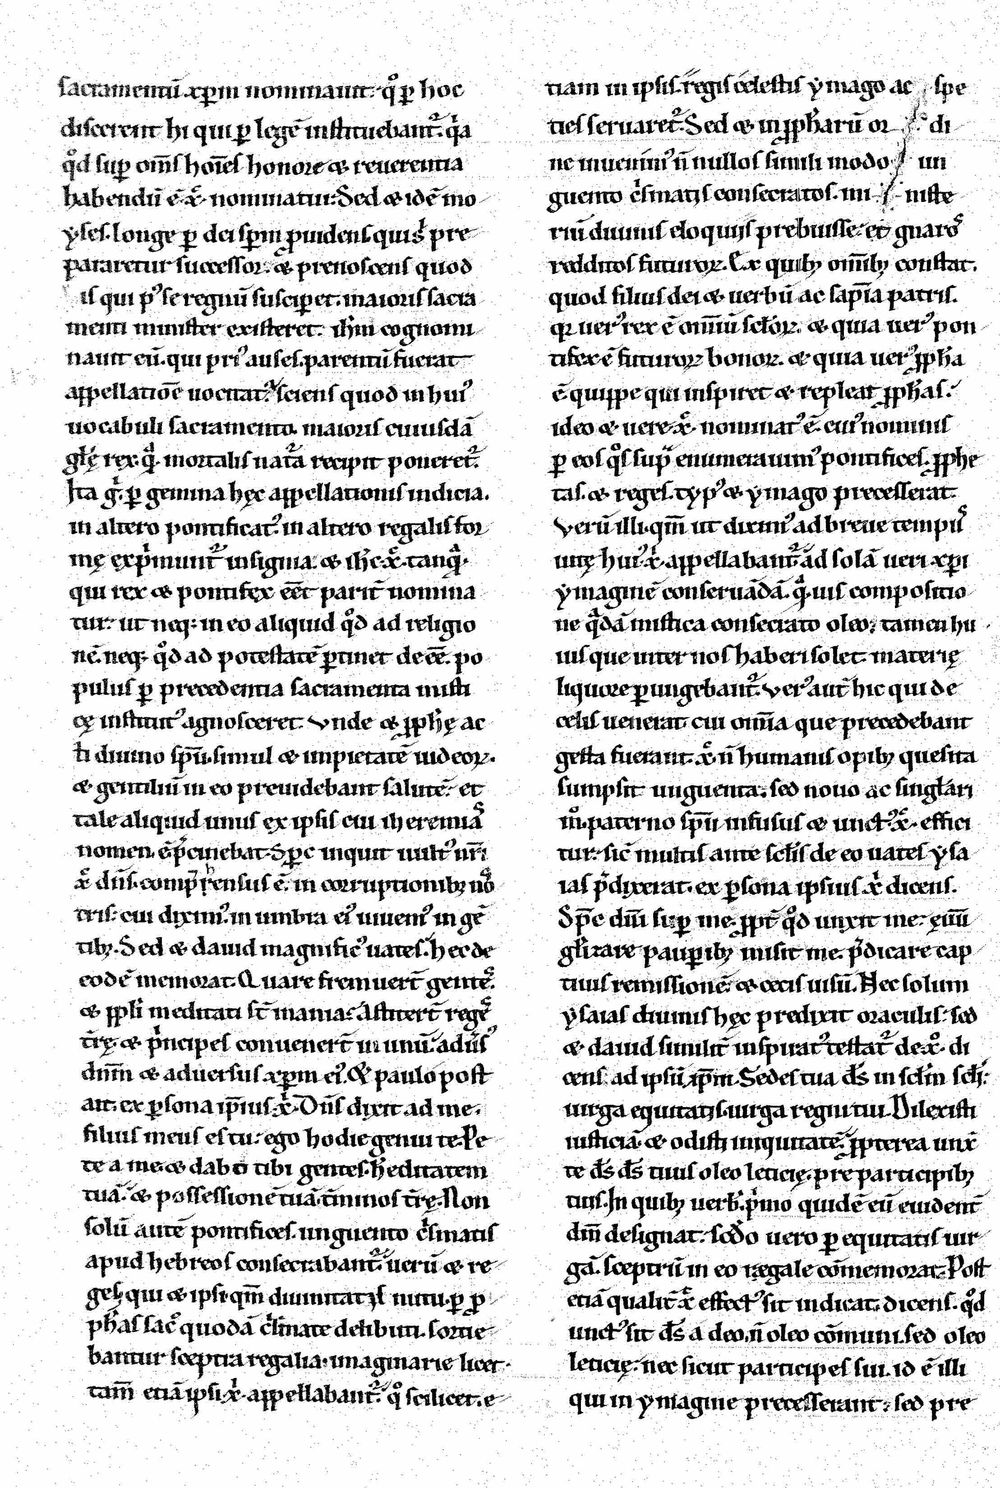 sacramentū xp̄m nominauit. qͦ ꝑ hoc
discerent hi qui ꝑ legē instituebant᷑. q̄a
qͦd suꝑ om̄s hoīes honore & reuerentia
habendū ē. x᷒. nominatur. Sed & idē mo
yses. longe ꝑ dei sp̄m ꝓuidens quis p̄ pre
pararetur successor. & prenoscens quod
is qui pꝰ se regnū susciperet. maioris sacra
menti minister existeret. ih̄m cognomi
nauit eū. qui priꝰ auses. parentū fuerat
appellatiōe uocitatꝰ. sciens quod in huiꝰ
uocabuli sacramento. maioris cuiusdā
gl̄ę rex. qͣ mortalis natͣa recipit poneret᷑.
Ita gͦ. ꝑ gemina hęc appellationis indicia.
in altero pontificatꝰ. in altero regalis for
mę exp̄munt᷑ insignia. & ih̄c. x᷒. tanqͣ.
qui rex & pontifex eēt parit̄ nomina
tur. ut neq; in eo aliquid qͦd ad religio
nē. neq; qͦd ad potestatē ꝑtinet deeē. po
pulus ꝑ precedentia sacramenta misti
cę institutꝰ agnosceret. Vnde & ꝓph̄ę ac
t̄i diuino sp̄u. simul & impietatē iudeoꝝ.
& gentiliū in eo preuidebant salutē. et
tale aliquid unus ex ipsis cui iheremiā
nomen ē p̄cinebat. Sp̄c inquit uultꝰ nr̄i
x᷒ dn̄s. comp̄hensus ē. in corruptionibꝫ nō
tris. cui diximꝰ in umbra eiꝰ uiuemꝰ in gē
tibꝫ. Sed & dauid magnificꝰ uates. hec de
eodē memorat. Quare fremuert̄ gentes.
& ppl̄i meditati st̄ inania. Astitert̄ reges
tr̄ę. & p̄ncipes conuenert̄ in unū. aduꝰs
dn̄m & aduersus xp̄m eiꝰ. Et paulo post
ait. ex ꝑsona ip̄ius. x᷒. Dn̄s dixit ad me.
filius meus es tu. ego hodie genui te. Pe
te a me. & dabo tibi gentes. h̄editatem
tuā. & possessionē tuā. t̄minos tr̄ę. Non
solū autē pontifices. unguento c᷒smatis
apud hebreos consecrabant᷑. uerū & re
ges. qui & ipsi qm̄ diuinitatis nutu. ꝑ ꝓ
ph̄as sacͦ quodā c᷒smate delibuti. sortie
bantur sceptra regalia. imaginarie licet.
tam̄ etiā ipsi x᷒. appellabant᷑. qͦ scilicet. e
tiam in ipsis. regis celestis ymago ac spe
ties seruaret᷑. Sed & in ꝓph̄arū or di
ne inuenimꝰ n̄ nullos simili modo un
guento c᷒smatis consecratos. mi niste
riū diuinis eloquiis prebuisse. et gnaroͤs
redditos futuroꝝ. Ex quibꝫ om̄ibꝫ constat.
quod filius dei & uerbū ac sap̄ia patris.
qꝛ uerꝰ rex ē om̄iū sc̄loꝝ. & quia uerꝰ pon
tifex ē futuroꝝ bonoꝝ. & quia uerꝰ ꝓph̄a
ē. quippe qui inspiret & repleat ꝓph̄as.
ideo & uere. x᷒. nominatꝰ ē. cuiꝰ nominis
ꝑ eos qͦs supͣ enumerauimꝰ pontifices. ꝓphe
tas. & reges. typꝰ & ymago precesserat.
Verū illi. qm̄ ut diximꝰ ad breue tempꝰ
uitę huiꝰ. x᷒. appellabant᷑. ad solā ueri xp̄i
ymaginē conseruādā. qͣuis compositio
ne qͣdā mistica consecrato oleo. tamen hu
ius que inter nos haberi solet. materię
liquore ꝑungebant᷑. Verꝰ aut̄ hic qui de
celis uenerat. cui om̄ia que precedebant
gesta fuerant. x᷒. n̄ humanis opibꝫ quesita
sumpsit unguenta. sed nouo ac singl̄ari
m̊. paterno sp̄u infusus & unctꝰ. x᷒. effici
tur. sic̄ multis ante sc̄lis de eo uates ysa
ias p̄dixerat. ex ꝑsona ipsius x᷒ dicens.
Sp̄c dn̄i suꝑ me. ꝓpt̄ qͦd unxit me. euū
gl̄izare pauꝑibꝫ misit me. p̄dicare cap
tiuis remissionē. & cecis uisū. Nec solum
ysaias diuinis hęc predixit oraculis. sed
& dauid similit̄ inspiratꝰ testat᷑ de. x᷒ͦ. di
cens. ad ipsū xp̄m. Sedes tua ds̄ in sc̄lm sc̄li.
uirga equitatis. uirga regni tui. Dilexisti
iusticiā. & odisti iniquitatē. ꝓpterea unx̄
te ds̄ ds̄ tuus oleo leticię. pre participibꝫ
tuis. In quibꝫ uerb̄. p̄mo quidē eū euident̄
dm̄ designat. sc̄do uero ꝑ equitatis uir
gā. sceptrū in eo regale cōmemorat. Post
etiā qualit̄ x᷒ effectꝰ sit indicat. dicens. qͦd
unctꝰ sit ds̄ a deo. n̄ oleo cōmuni. sed oleo
leticię. nec sicut participes sui. id ē illi
qui in ymagine precesserant. sed pre